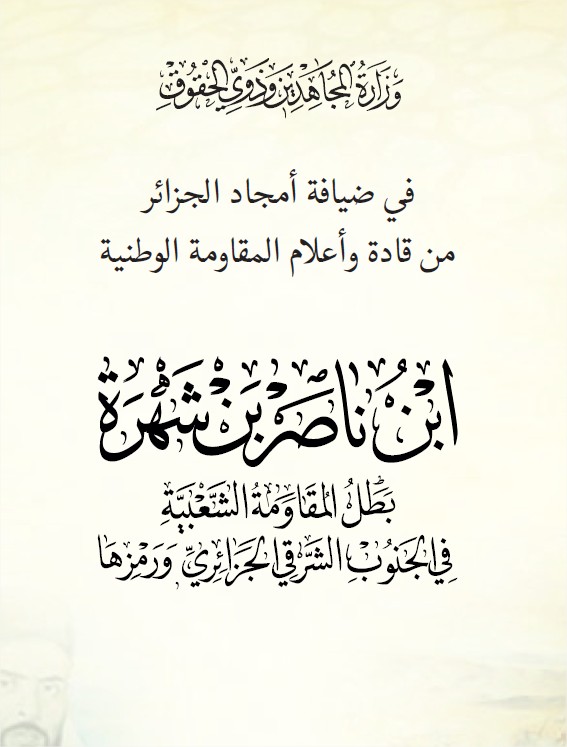 وَزَارَةُ المُجَاهِدِينَ وَذَوِي الحُقُوقِ
في ضيافة أمجاد الجزائر
من قادة وأعلام المقاومة الوطنية
ابْنُ نَاصَرْ بَنْ شَهْرَة
بَطَلُ المُقَاوَمَةُ الشَّعْبِيَّةِ
فِي الجَنُوبِ الشَّرْقِي الجَزَائِرِيِّ وَرَمْزِهَا